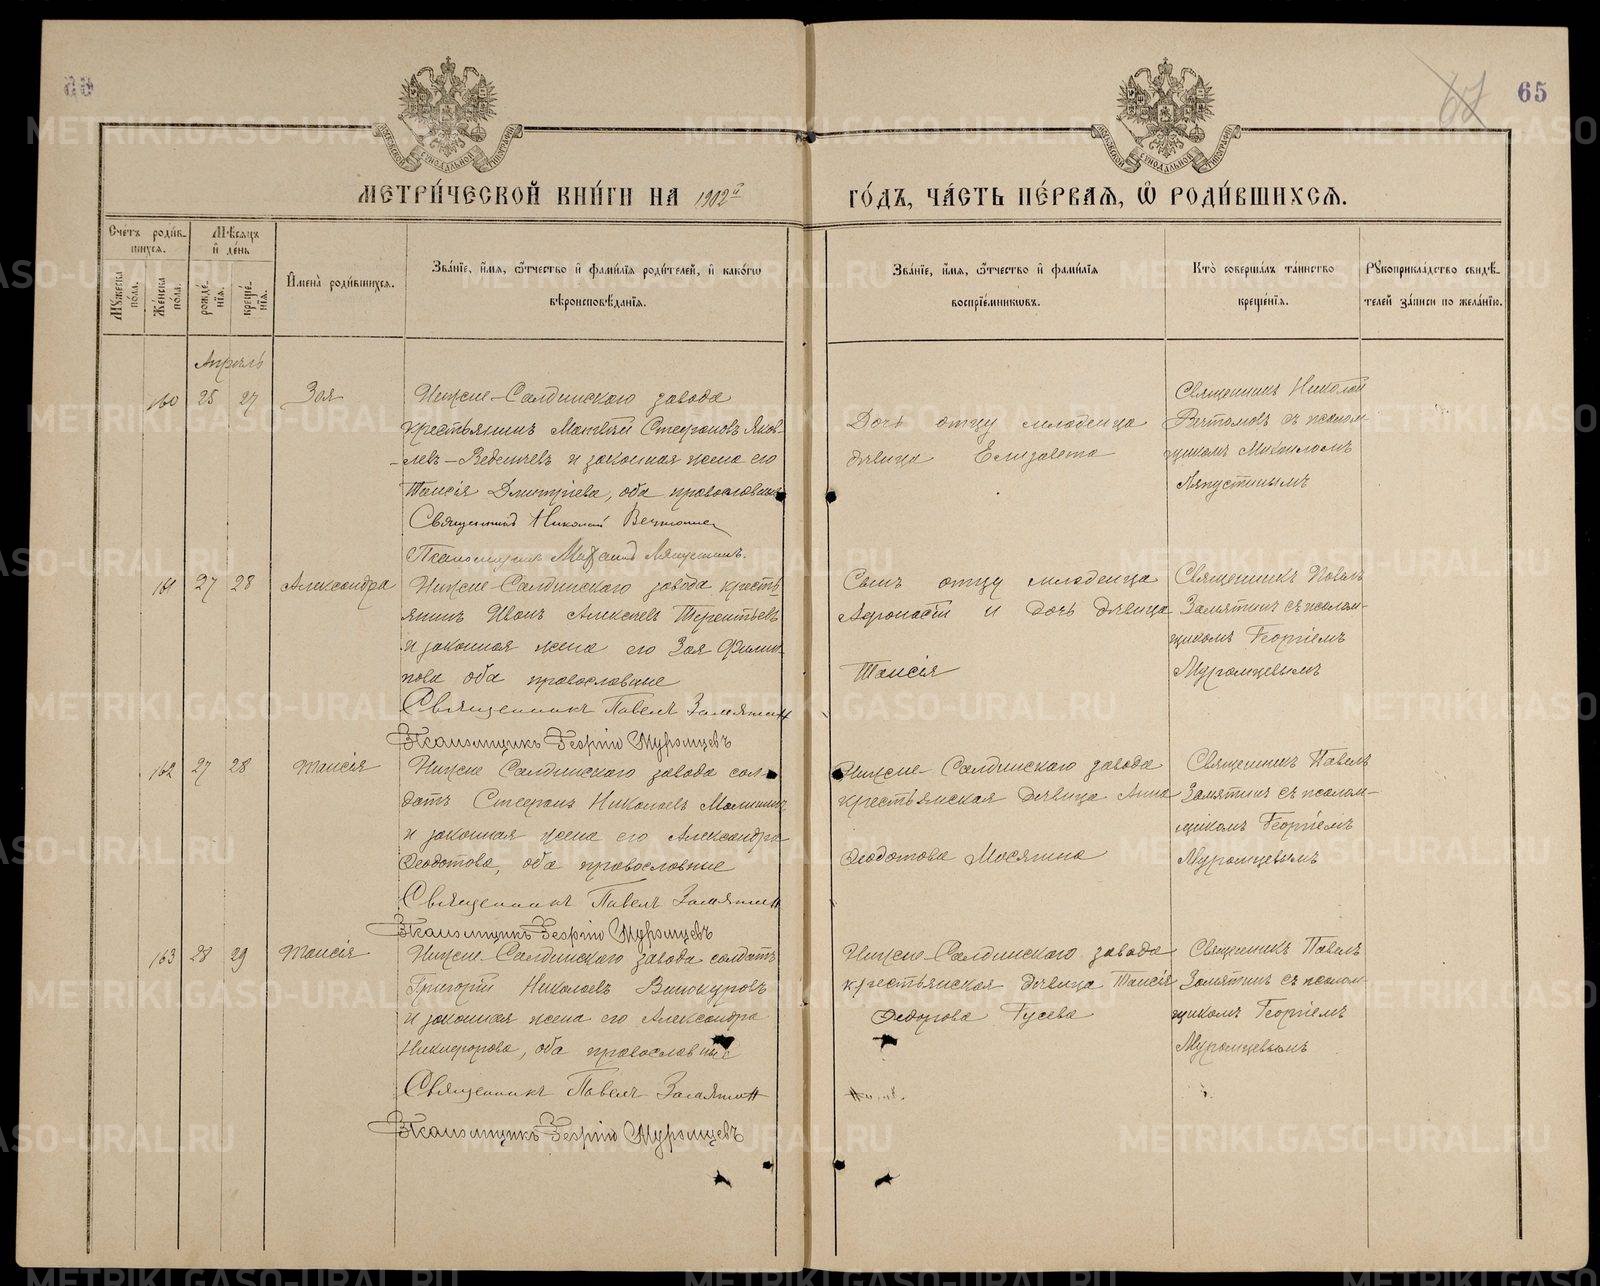 65
МЕТРИ́ЧЕСКОЙ КНИ́ГИ НА 1902й ГО́ДЪ, ЧА́СТЬ ПЕ́РВАЯ, Ѿ РОДИ́ВШИХСЯ.
Сче́тъ роди́в-
шихся.
Мꙋ́жеска по́ла.
Же́нска по́ла.
Мѣ́сяцъ
и҆ де́нь
рожде́нїя.
креще́нїя.
И҆мена̀ роди́вшихся.
Зва́нїе, и҆́мя, ѻ҆́тчество и҆ фами́лїя роди́телей, и҆ како́гѡ
вѣроисповѣ́данїя.
Зва́нїе, и҆́мя, ѻ҆́тчество и҆ фами́лїя
воспрїе́мникѡвъ.
Кто̀ соверша́лъ та́инство
креще́нїя.
Рꙋкоприкла́дство свидѣ́-
телей за́писи по жела́нїю.
Апрѣль
160 25 27 Зоя
Нижне-Салдинскаго завода
крестьянинъ Матвѣй Стефановъ Яков-
левъ-Веденеевъ и законная жена его
Таисія Димитріева, оба православные
Священникъ Николай
Псаломщикъ Михаилъ Ляпустинъ.
Дочь отцу младенца
дѣвица Елизавета
Священникъ Николай
съ псалом-
щикомъ Михаиломъ
Ляпустинымъ
161 27 28 Александра
Нижне-Салдинскаго завода кресть-
янинъ Иванъ Алексѣевъ Терентьевъ
и законная жена его Зоя Филип-
пова оба православные
Священникъ Павелъ Замятин
Псаломщикъ Георгій Муромцевъ
Сынъ отцу младенца
Афонасій и дочь дѣвица
Таисія
Священникъ Павелъ
Замятинъ съ псалом-
щикомъ Георгіемъ
Муромцевымъ
162 27 28 Таисія
Нижне Салдинскаго завода сол-
датъ Стефанъ Николаевъ Малининъ
и законная жена его Александра
Феодотова, оба православные
Священникъ Павелъ Замятин
Псаломщикъ Георгій Муромцевъ
Нижне-Салдинскаго завода
крестьянская дѣвица Анна
Феодотова Мосягина
Священникъ Павелъ
Замятинъ съ псалом-
щикомъ Георгіемъ
Муромцевымъ
163 28 29 Таисія
Нижне-Салдинскаго завода солдатъ
Григорій Николаевъ Винокуровъ
и законная жена его Александра
Никифорова, оба православные
Священникъ Павелъ Замятин
Псаломщикъ Георгій Муромцевъ
Нижне-Салдинскаго завода
крестьянская дѣвица Таисія
Феодорова Гусева
Священникъ Павелъ
Замятинъ съ псалом-
щикомъ Георгіемъ
Муромцевымъ
METRIKI.GASO-URAL.RU